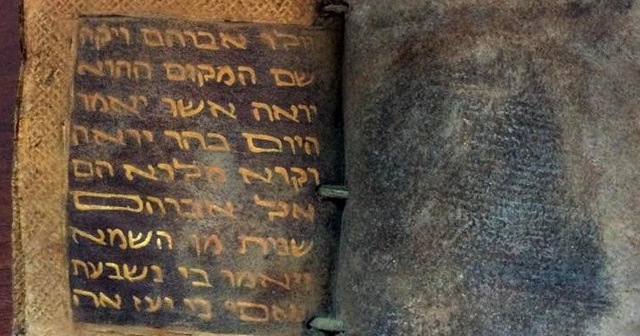 אברהם ויקח
שם המקום ההוא
יראה אשר יאמר
היום בהר יראה
וקרא מלרא הם
אל אברהם
שנית מן השמא
ויאמר בי נשבעת
יעז אה